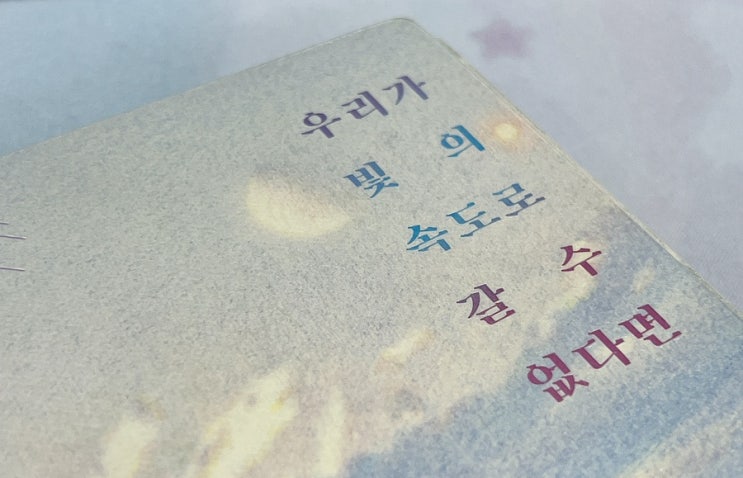 우리가
빛 의
속도로
갈 수
없다면